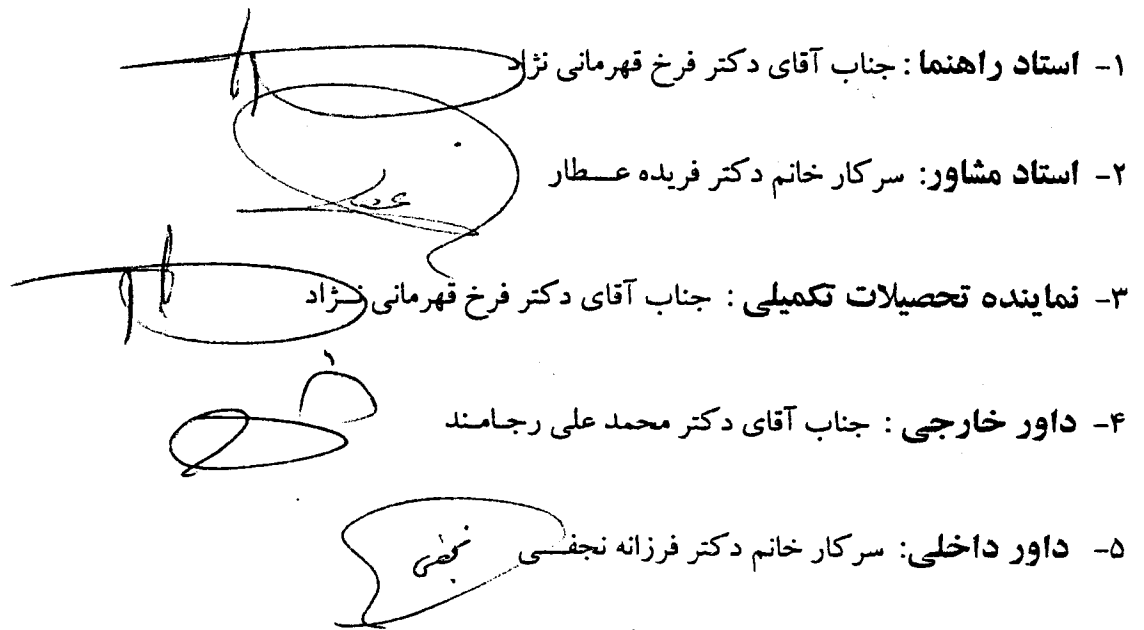 ۱- استاد راهنما : جناب آقای دکتر فرخ قهرمانی نژاد
۲- استاد مشاور: سرکار خانم دکتر فریده عـــطار
۳- نماینده تحصیلات تکمیلی : جناب آقای دکتر فرخ قهرمانی نــژاد
۴- داور خارجی : جناب آقای دکتر محمد علی رجـامـند
۵- داور داخلی: سرکار خانم دکتر فرزانه نجفــی
نجفی